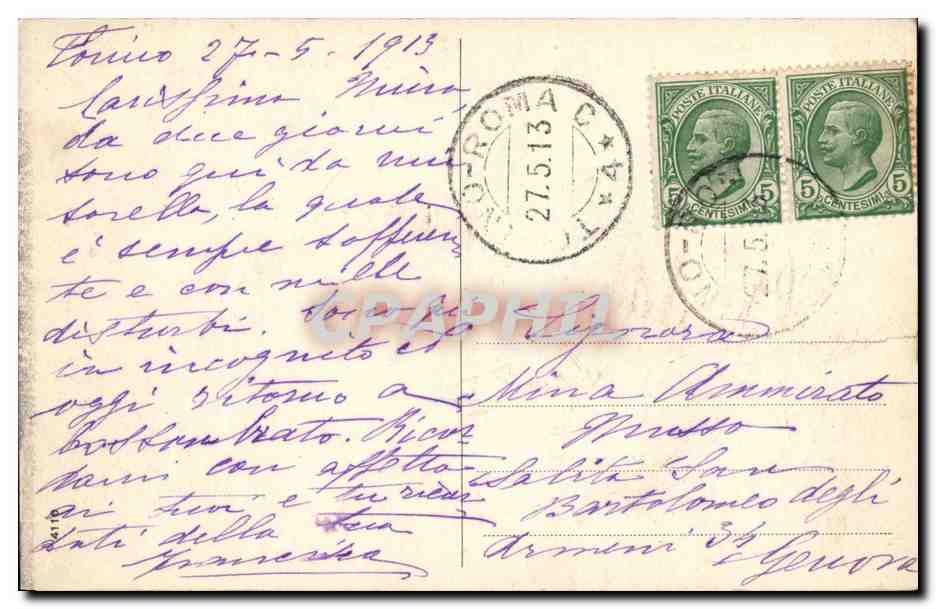 Torino 27-5-1913
Carissima Mina
da due giorni
sono qui da mia
sorella, la quale
è sempre sofferen-
te e con mille
disturbi. Sono qui
in incognito ed
oggi ritorno a
Ricor-
dami con affetto
ai tuoi e tu ricor
dati della tua
Francesca
4110
NO-ROMA C * 4 * T
27.5.13
POSTE ITALIANE
5 5
CENTESIMI
POSTE ITALIANE
5 5
CENTESIMI
NO-RO
27.5
CPAPHIL
Signora
Mina Ammirato
Musso
Salita San
Bartolomeo degli
Armeni 32
Genova